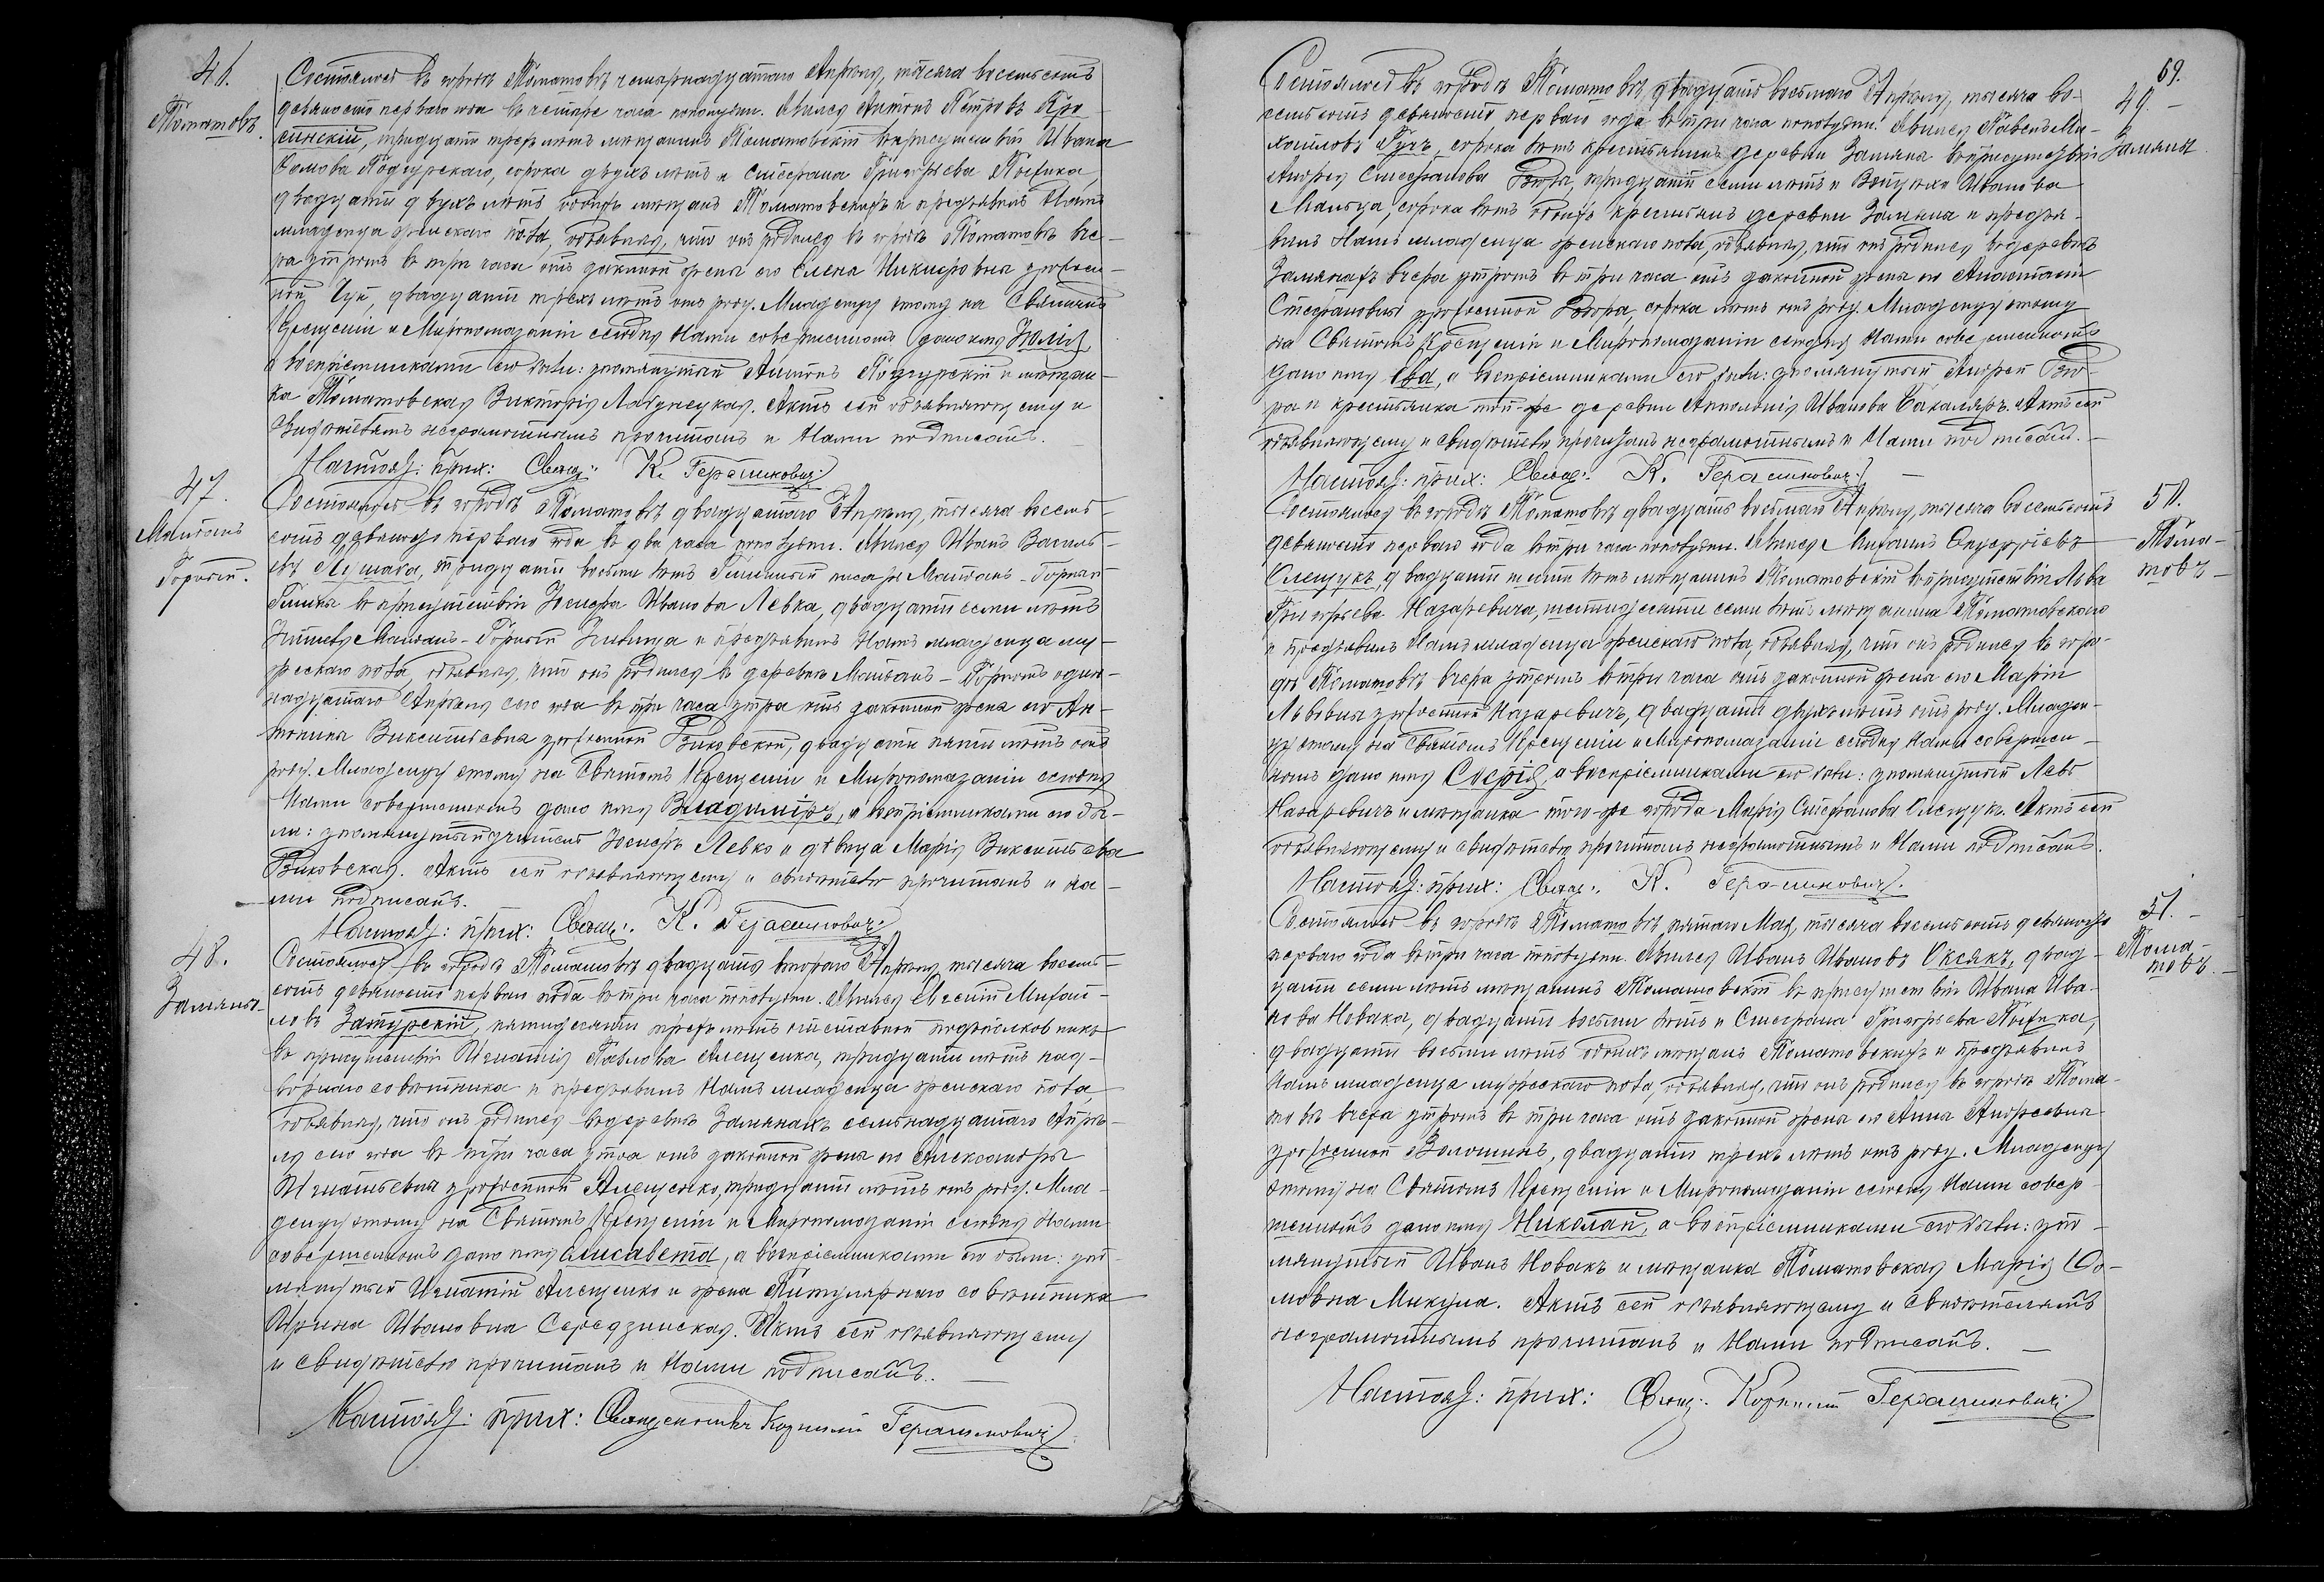 46.
Томатовъ.
Состоялось въ городѣ Томатовѣ четырнадцатаго Апрѣля, тысяча восемьсотъ
девяносто перваго года въ четыре часа пополудни. Явился Антонъ Петровъ
тридцати трехъ лѣтъ мѣщанинъ Томатовскій въ присутствіи Ивана
Подгурскаго, сорока двухъ лѣтъ и Стефана Григорьева Пытика,
двадцати двухъ лѣтъ обоихъ мѣщанъ Томатовскихъ и предъявилъ Намъ
младенца женскаго пола, объявляя, что онъ родился въ городѣ Томатовѣ вче-
ра утромъ въ три часа отъ законной жены его Елена Никифоровна урожден-
ной двадцати трехъ лѣтъ отъ роду. Младенцу этому на Святомъ
Крещеніи и Миропомазаніи сегодня Нами совершенномъ дано имя Юлія
а воспріемниками его были: упомянутый Подгурскій и мѣщан-
ка Томатовская Викторія Лабунецкая. Актъ сей объявляющему и
Свидѣтелямъ неграмотнымъ прочитанъ и Нами подписанъ.
Настоят: прих: Свящ: К. Герасимовичъ
47.
Майданъ
Горный.
Состоялось въ городѣ Томатовѣ двадцатаго Апрѣля, тысяча восемь-
сотъ девяносто перваго года въ два часа пополудни. Явился Иванъ Василь-
евъ тридцати восьми лѣтъ Гминный писарь Майданъ-Горный
Гмины въ присутствіи Іосифа Иванова Левка, двадцати семи лѣтъ
Майданъ-Горный и предъявилъ Намъ младенца му-
жескаго пола, объявляя, что онъ родился въ деревнѣ Майданъ-Горномъ один-
надцатаго Апрѣля сего года въ три часа утра отъ законной жены его Ан-
тонины Викентьевна урожденной Быковской, двадцати пяти лѣтъ отъ
роду. Младенцу этому на Святомъ Крещеніи и Миропомазаніи сегодня
Нами совершенномъ дано имя Владиміръ, а воспріемниками его бы-
ли: упомянутый учитель Іосифъ Левко и дѣвица Марія Викентьева
Быковская. Актъ сей объявляющему и свидѣтелю прочитанъ и На-
ми подписанъ.
Настоят: прих: Свящ: К. Герасимовичъ
48.
Замяны
Состоялось въ городѣ Томатовѣ двадцать втораго Апрѣля, тысяча восемь-
сотъ девяносто перваго года въ три часа пополудни. Явился Михаи-
ловъ Затурскій, пятидесяти трехъ лѣтъ отставной подполковникъ
въ присутствіи Игнатія Павлова Алещенка, тридцати лѣтъ над-
ворнаго совѣтника и предъявилъ Намъ младенца женскаго пола,
объявляя, что онъ родился въ деревнѣ Замянахъ семьнадцатаго Апрѣ-
ля сего года въ три часа утра отъ законной жены его Александры
Игнатьевна урожденной Алещенко, тридцати лѣтъ отъ роду. Мла-
денцу этому на Святомъ Крещеніи и Миропомазаніи сегодня Нами
совершенномъ дано имя Елисавета, а воспріемниками его были: упо-
мянутый Игнатій Алещенко и жена Титулярнаго совѣтника
Ирина Ивановна Середзинская. Актъ сей объявляющему
и свидѣтелю прочитанъ и Нами подписанъ.
Настоят: прих: Священникъ Корнилій Герасимовичъ
69.
49.
Замяны
Состоялось въ городѣ Томатовѣ, двадцать восьмаго Апрѣля, тысяча во-
семьсотъ девяносто перваго года въ три часа пополудни. Явился Павелъ Ми-
хайловъ сорока лѣтъ крестьянинъ деревни Замяна въ присутствіи
Андрея Стефанова тридцати семи лѣтъ и Иванова
Мальца, сорока лѣтъ обоихъ крестьянъ деревни Замяна и предъя-
вилъ Намъ младенца женскаго пола, объявляя, что онъ родился въ деревнѣ
Замянахъ вчера утромъ въ три часа отъ законной жены его Анастасіи
Стефановны урожденной сорока лѣтъ отъ роду. Младенцу этому
на Святомъ Крещеніи и Миропомазаніи сегодня Нами совершенномъ
дано имя Ева, а воспріемниками его были: упомянутый Андрей
и крестьянка той-же деревни Апполонія Иванова Бакаляръ. Актъ сей
объявляющему и свидѣтелю прочитанъ неграмотнымъ и Нами подписанъ.
Настоят: прих: Свящ: К. Герасимовичъ
50.
Тома-
товъ
Состоялось въ городѣ Томатовѣ двадцать восьмаго Апрѣля, тысяча восемьсотъ
девяносто перваго года въ три часа пополудни. Явился
Олещукъ, двадцати шести лѣтъ мѣщанинъ Томатовскій въ присутствіи Льва
Григорьева Назаревича, шестидесяти семи лѣтъ мѣщанина Томатовскаго
и предъявилъ Намъ младенца женскаго пола, объявляя, что онъ родился въ горо-
дѣ Томатовѣ вчера утромъ въ три часа отъ законной жены его Маріи
Львовны урожденной Назаревичъ, двадцати двухъ лѣтъ отъ роду. Младен-
цу этому на Святомъ Крещеніи и Миропомазаніи сегодня Нами совершен-
номъ дано имя Софія, а воспріемниками его были: упомянутый Левъ
Назаревичъ и мѣщанка того-же города Марія Стефанова Олещукъ. Актъ сей
объявляющему и свидѣтелю прочитанъ неграмотнымъ и Нами подписанъ.
Настоят: прих: Свящ: К. Герасимовичъ.
51.
Тома-
товъ.
Состоялось въ городѣ Томатовѣ пятаго Мая, тысяча восемьсотъ девяносто
перваго года въ три часа пополудни. Явился Иванъ Ивановъ Оксякъ, двад-
цати семи лѣтъ мѣщанинъ Томатовскій въ присутствіи Ивана Ива-
нова Новака, двадцати восьми лѣтъ и Стефана Григорьева Пытика,
двадцати восьми лѣтъ обоихъ мѣщанъ Томатовскихъ и предъявилъ
Намъ младенца мужескаго пола, объявляя, что онъ родился въ городѣ Тома-
товѣ вчера утромъ въ три часа отъ законной жены его Анна Андреевна
урожденной Волошинъ, двадцати трехъ лѣтъ отъ роду. Младенцу
этому на Святомъ Крещеніи и Миропомазаніи сегодня Нами совер-
шенномъ дано имя Николай, а воспріемниками его были: упо-
мянутый Иванъ Новакъ и мѣщанка Томатовская Марія
Микула. Актъ сей объявляющему и Свидѣтелямъ
неграмотнымъ прочитанъ и Нами подписанъ.
Настоят: прих: Свящ: Корнилій Герасимовичъ